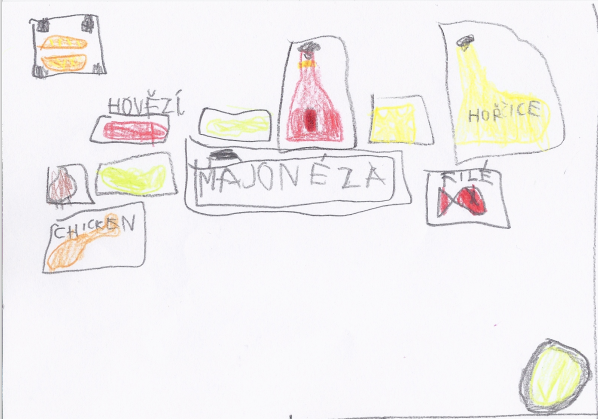 HOVĚZÍ
HOŘICE
MAJONÉZA
FILÉ
CHICKEN